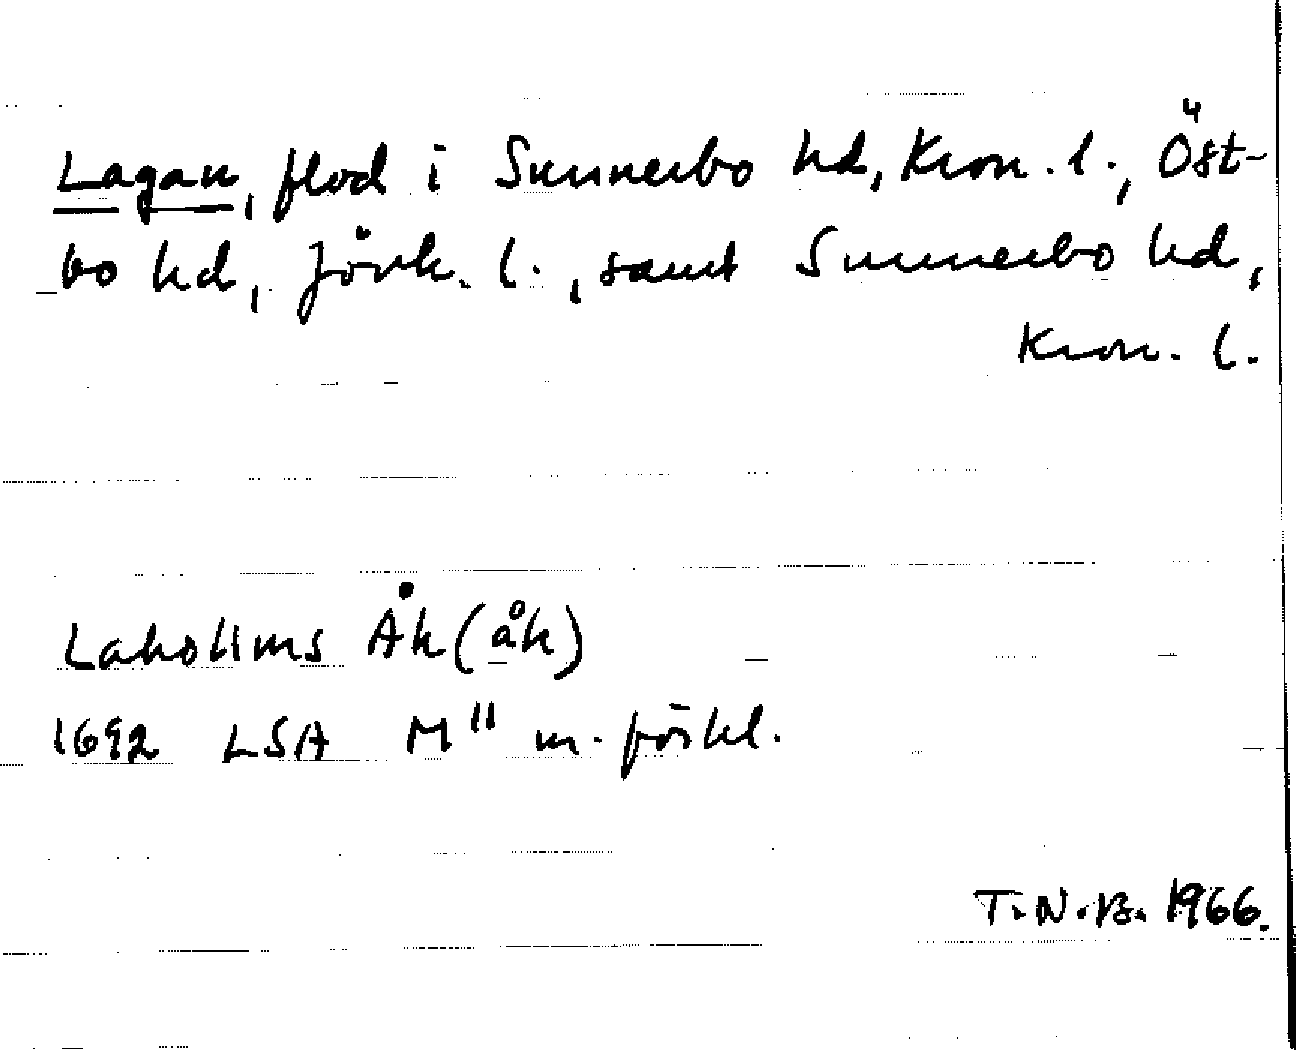 Lagan, flod i Sunnerbo hd, Kron. l., Öst-
bo hd, Jönk. l., samt Sunnerbo hd,
Kron. l.
Laholms Åk (åk)
1692 LSA M11 m. förkl.
T.N.B. 1966.